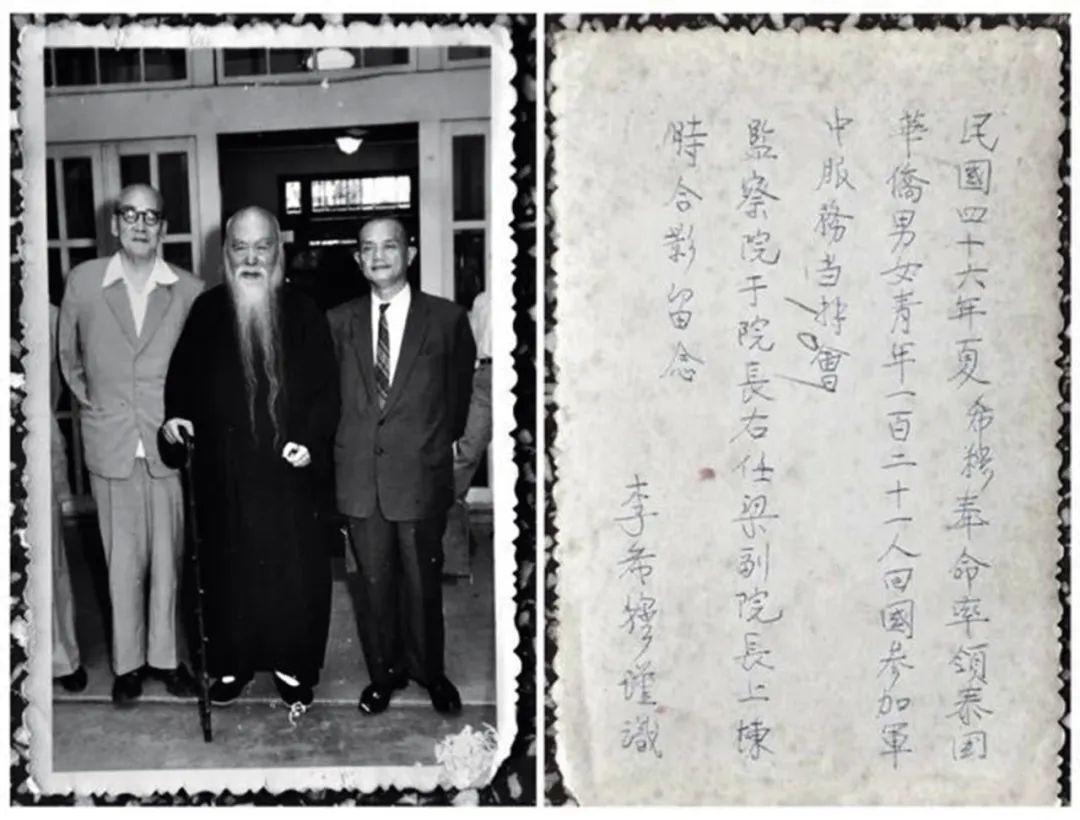 民國四十六年夏希穆奉命率領泰国
華僑男女青年一百二十一人回國參加軍
中服務当拜會
監察院于院長右任梁副院長上棟
時合影留念
李希穆謹識